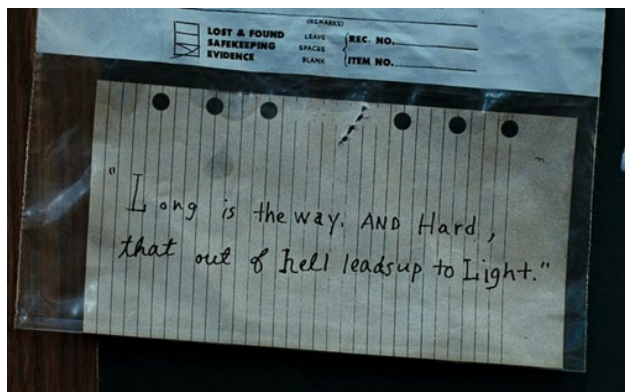 (REMARKS)
LOST & FOUND
SAFEKEEPING
EVIDENCE
LEAVE
SPACES
BLANK
REC. NO.
ITEM NO.
"Long is the way. AND Hard,
that out of hell leadsup to Light."